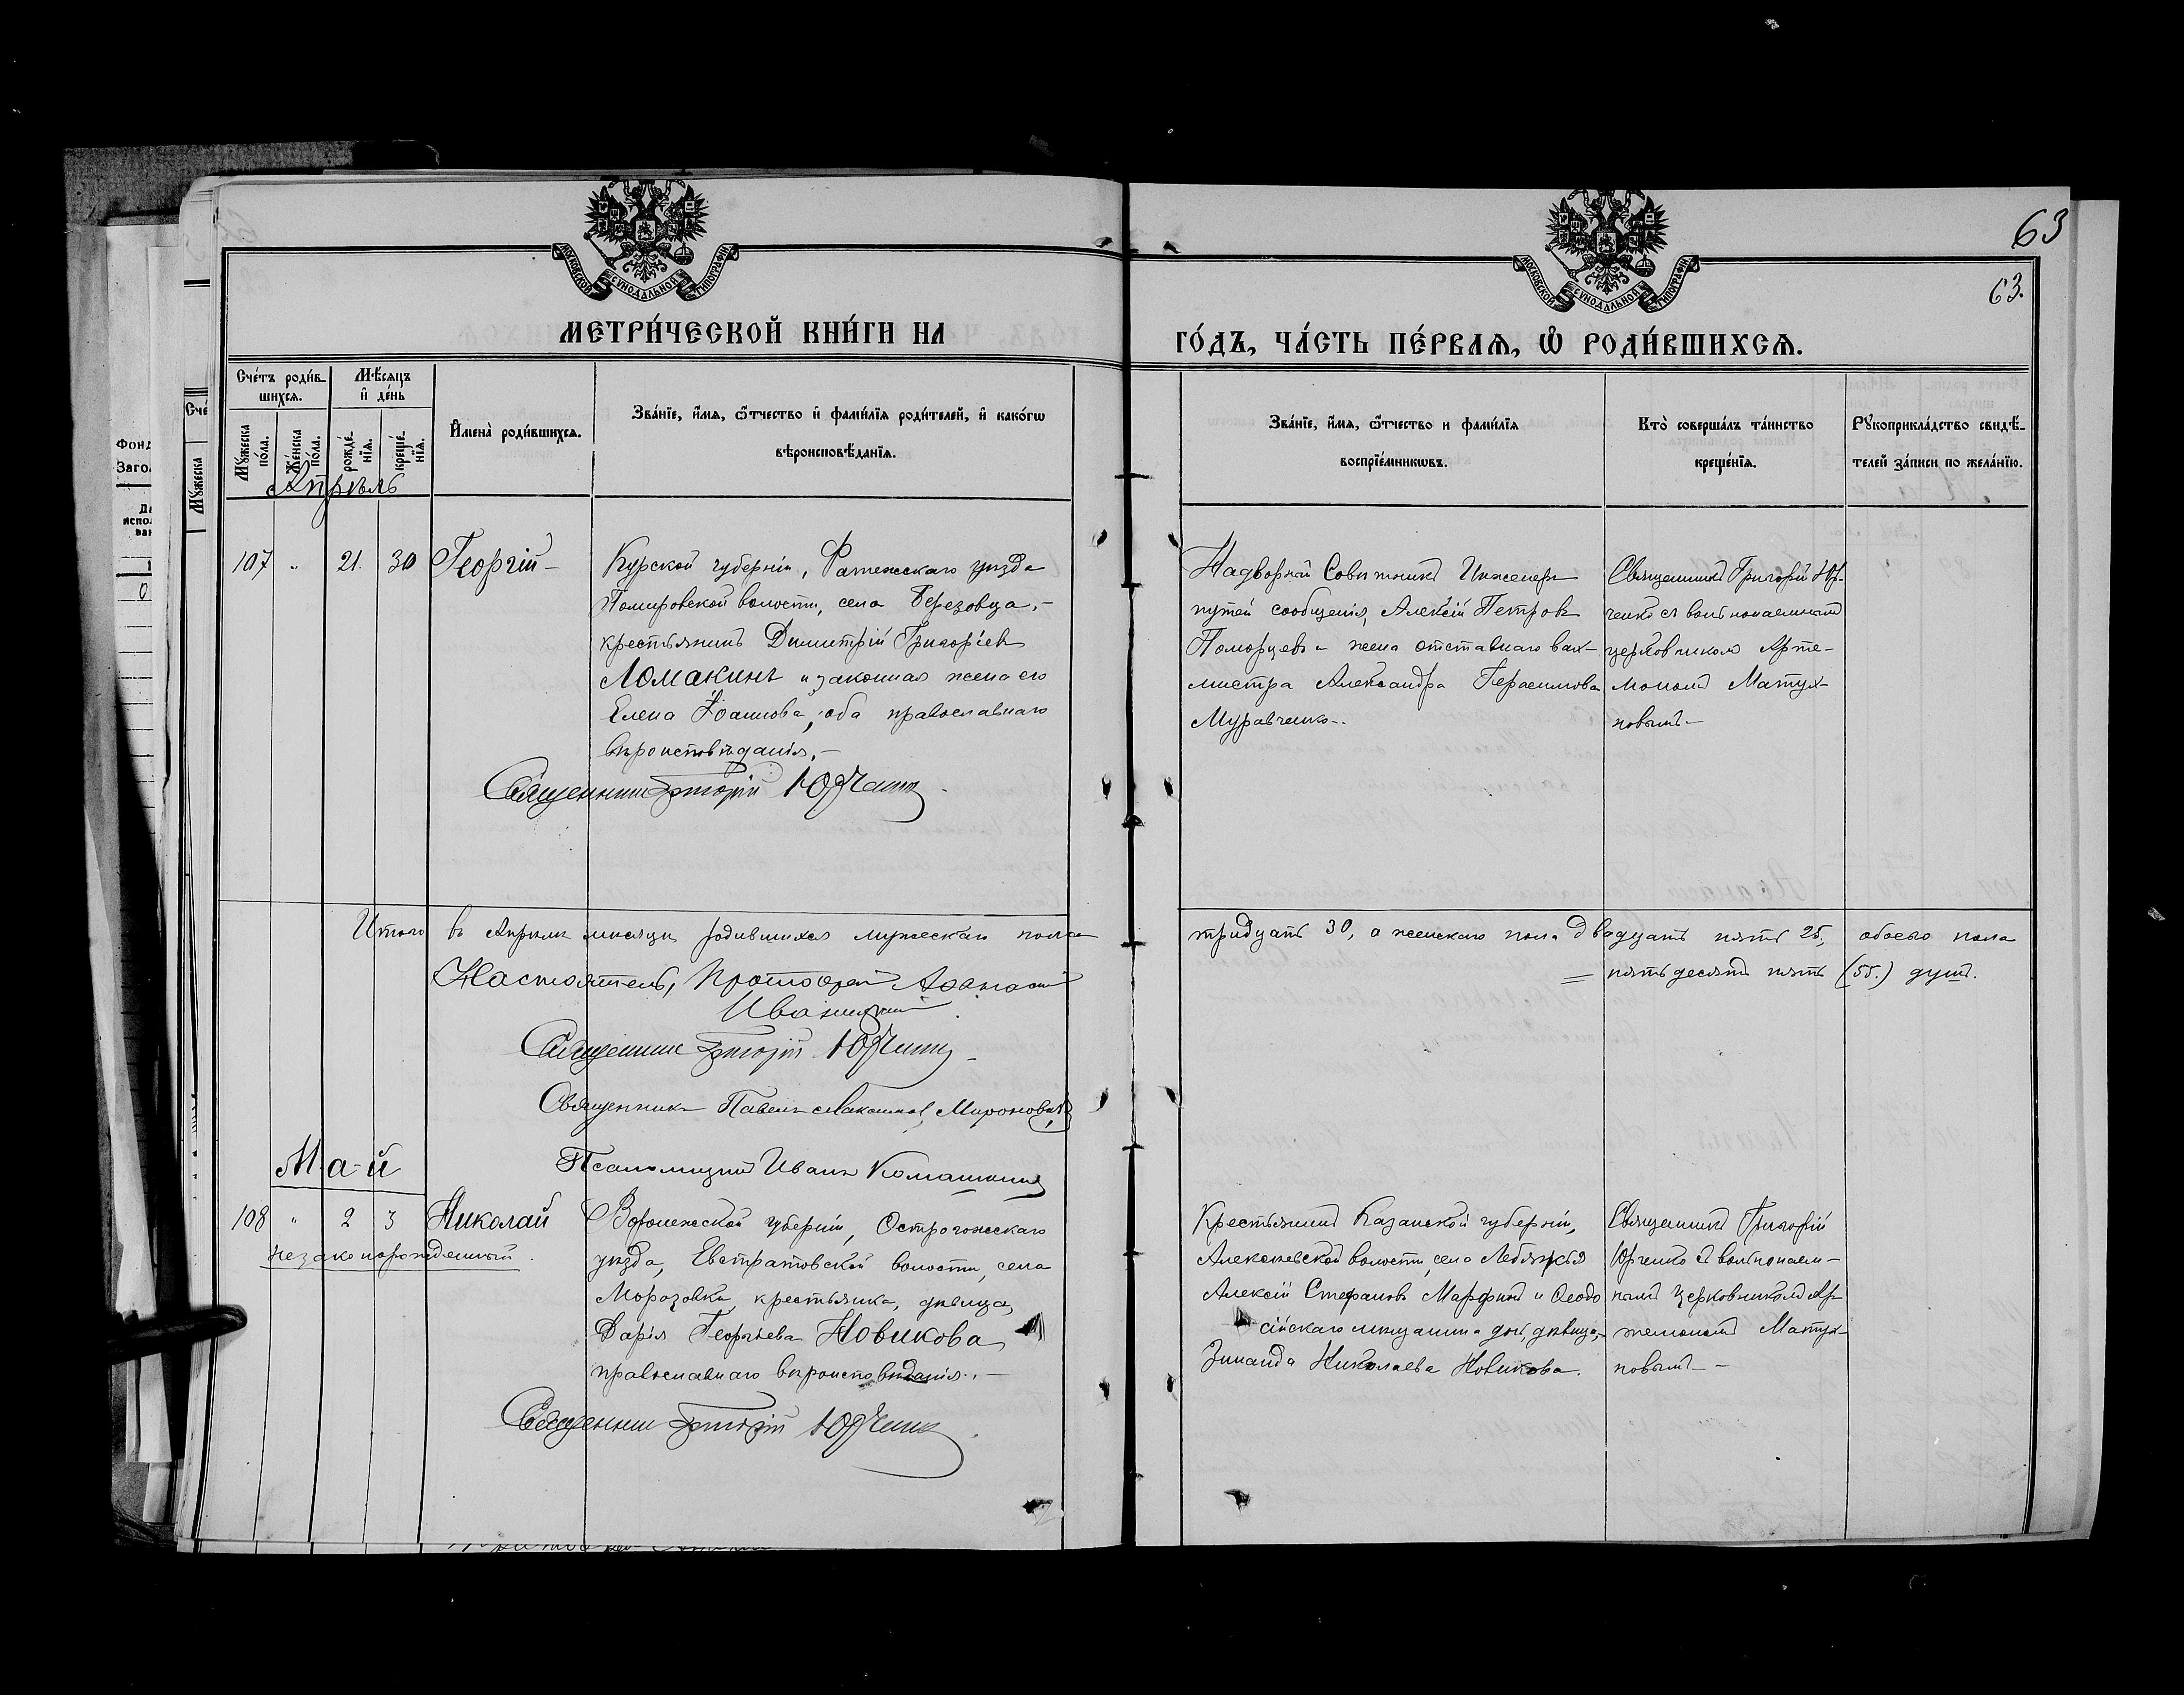 63
63.
МОСКОВСКОЙ СУНОДАЛЬНОЙ ТИПОГРАФІИ
МОСКОВСКОЙ СУНОДАЛЬНОЙ ТИПОГРАФІИ
МЕТРИ́ЧЕСКОЙ КНИ́ГИ НА
ГО́ДЪ, ЧА́СТЬ ПЕ́РВАѦ, Ѡ РОДИ́ВШИХСѦ.
Сче́тъ роди́в-
шихсѧ.
Мѣ́сѧцъ
и де́нь
Мꙋ́жеска
по́ла.
Же́нска
по́ла.
рожде́-
нїѧ.
креще́-
нїѧ.
Имена̀ роди́вшихсѧ.
Зва́нїе, и́мѧ, ѻ́тчество и фами́лїѧ роди́телей, и како́гѡ
вѣроисповѣ́данїѧ.
Зва́нїе, и́мѧ, ѻ́тчество и фами́лїѧ
воспрїе́мникѡвъ.
Кто̀ соверша́лъ та́инство
креще́нїѧ.
Рꙋкоприкла́дство свидѣ́-
телей за́писи по жела́нїю.
Фонд
Заго
Сче
Мꙋжеска
Апрѣль
107 „ 21. 30 Георгій –
Курской губерніи, Фатежскаго уѣзда
волости, села Березовца, –
крестьянинъ Димитрій Григоріевъ
Ломакинъ и законная жена его
Елена Іоаннова, оба православнаго
вѣроисповѣданія. –
Священникъ Григорій Юрченко
Надворный Совѣтникъ Инженеръ
путей сообщенія, Алексій Петровъ
Поморцевъ и жена отставнаго вах-
мистра Александра Герасимова
Муравченко. –
Священникъ Григорій Юр-
ченко съ вольнонаемнымъ
церковникомъ Арте-
мономъ Матух-
новымъ –
Итого въ Апрѣлѣ мѣсяцѣ родившихся мужескаго пола
тридцать 30, а женскаго пола двадцать пять 25, обоего пола
= пятьдесятъ пять (55.) душъ.
Настоятель, Протоіерей Аѳанасій
Священникъ Григорій Юрченко
Священникъ Павелъ Мироновичъ
Псаломщикъ Иванъ
М-а-й
108 „ 2 3 Николай
незаконорожденный.
Воронежской губерніи, Острогожскаго
уѣзда, Евстратовской волости, села
Морозовки, крестьянка, дѣвица,
Дарія Георгіева Новикова
православнаго вѣроисповѣданія. –
Священникъ Григорій Юрченко
Крестьянинъ Казанской губерніи,
Алексѣевской волости, села Лебяжья
Алексій Стефановъ и Ѳеодо
сійскаго мѣщанина дочь, дѣвица,
Зинаида Николаева Новикова.
Священникъ Григорій
Юрченко съ вольнонаем-
нымъ церковникомъ Ар-
темономъ Матух-
новымъ –